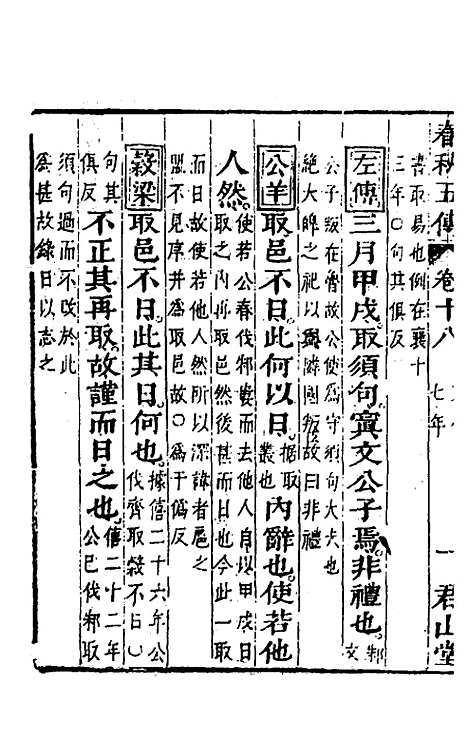 春秋五傳 卷十八 七年 一 君山堂
書取易也例在襄十
三年○句其俱反
左傳 三月甲戌取須句寘文公子焉非禮也 邾文
公子叛在魯故公使爲守須句大夫也
絶大皞之祀以與鄰國叛故曰非禮
公羊 取邑不日此何以日 据取叢也 內辭也使若他
人然 使若公春伐邾婁而去他人自以甲戌日
取之內再取邑然後甚而日也今此一取
而日故使若他人然所以深諱者扈之
盟不見序并爲取邑故○爲于僞反
穀梁 取邑不日此其日何也 據僖二十六年公
伐齊取穀不日○
句其俱反 不正其再取故謹而日之也 僖二十二年
公已伐邾取
須句過而不改於此
爲甚故錄日以志之